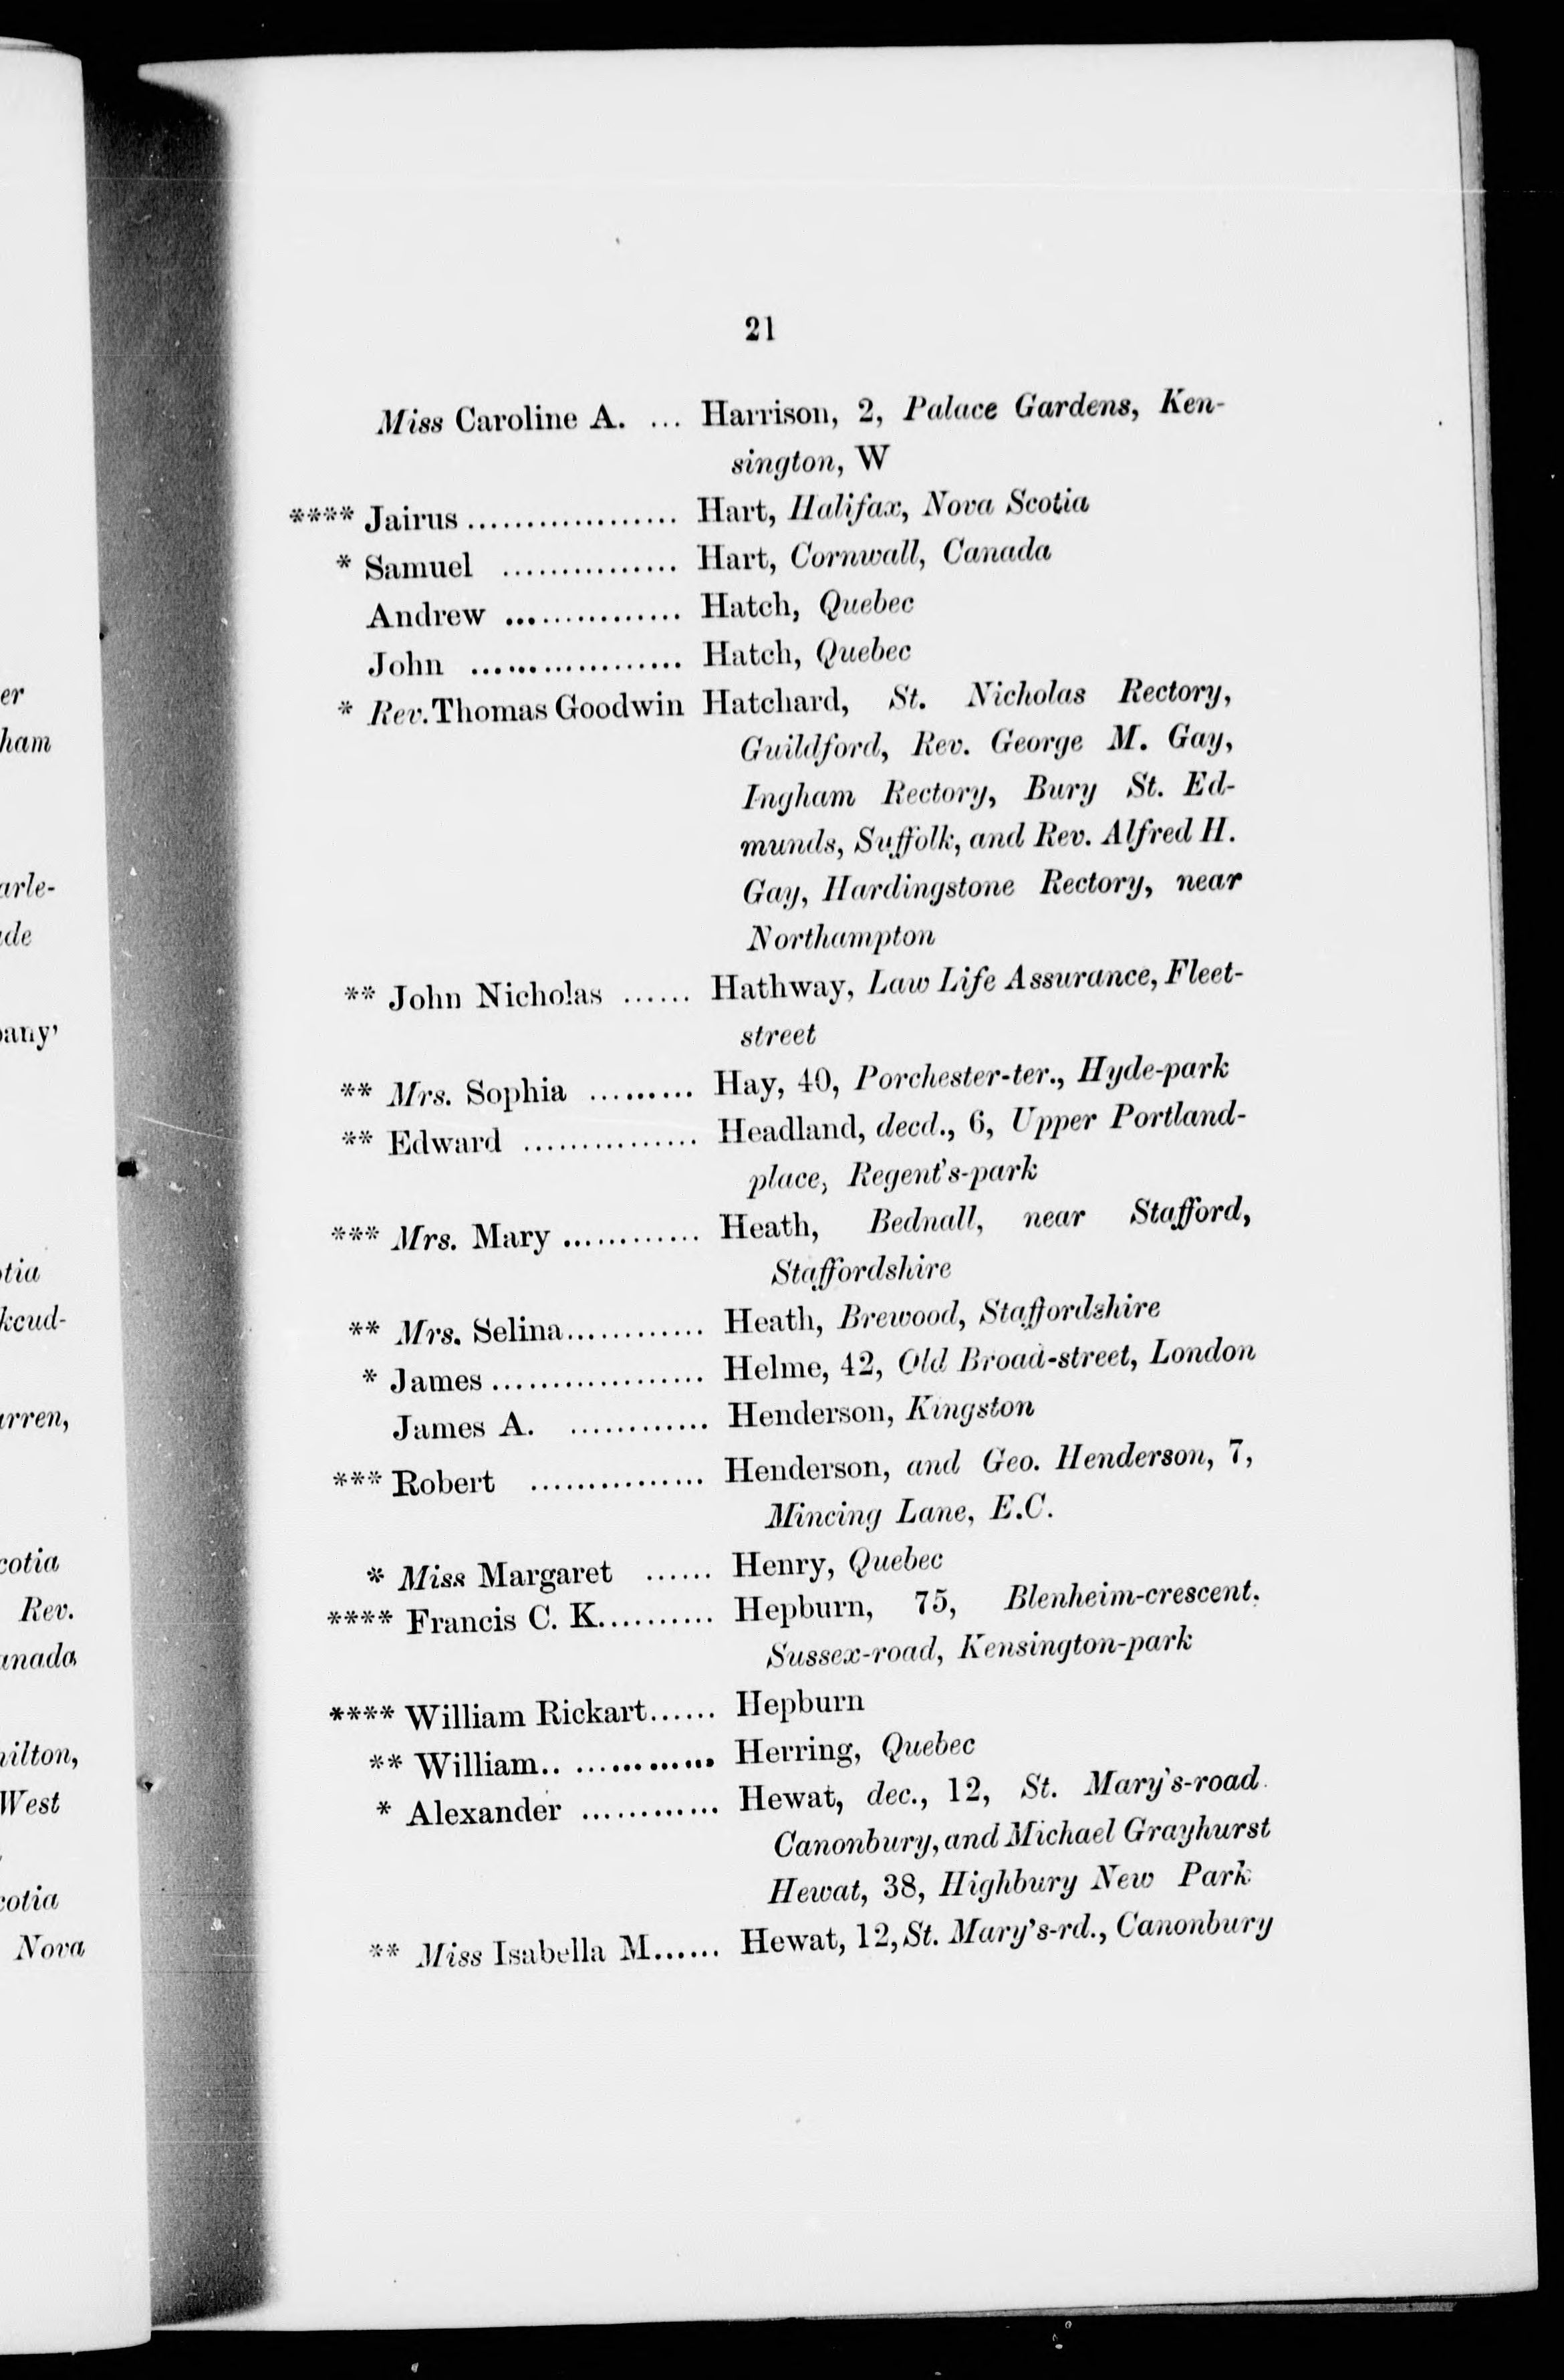 er
ham
arle-
ade
pany'
otia
kcud-
arren,
cotia
Rev.
anada
nilton,
West
cotia
Nova
21
Miss Caroline A. ... Harrison, 2, Palace Gardens, Ken-
sington, W
**** Jairus .................. Hart, Halifax, Nova Scotia
* Samuel ............... Hart, Cornwall, Canada
Andrew ............... Hatch, Quebec
John .................. Hatch, Quebec
* Rev. Thomas Goodwin Hatchard, St. Nicholas Rectory,
Guildford, Rev. George M. Gay,
Ingham Rectory, Bury St. Ed-
munds, Suffolk, and Rev. Alfred H.
Gay, Hardingstone Rectory, near
Northampton
** John Nicholas ...... Hathway, Law Life Assurance, Fleet-
street
** Mrs. Sophia ......... Hay, 40, Porchester-ter., Hyde-park
** Edward ............... Headland, decd., 6, Upper Portland-
place, Regent's-park
*** Mrs. Mary ............ Heath, Bednall, near Stafford,
Staffordshire
** Mrs. Selina............ Heath, Brewood, Staffordshire
* James .................. Helme, 42, Old Broad-street, London
James A. ............ Henderson, Kingston
*** Robert ............... Henderson, and Geo. Henderson, 7,
Mincing Lane, E.C.
* Miss Margaret ...... Henry, Quebec
**** Francis C. K.......... Hepburn, 75, Blenheim-crescent.
Sussex-road, Kensington-park
**** William Rickart...... Hepburn
** William.. ............ Herring, Quebec
* Alexander ............ Hewat, dec., 12, St. Mary's-road
Canonbury, and Michael Grayhurst
Hewat, 38, Highbury New Park
** Miss Isabella M...... Hewat, 12, St. Mary's-rd., Canonbury